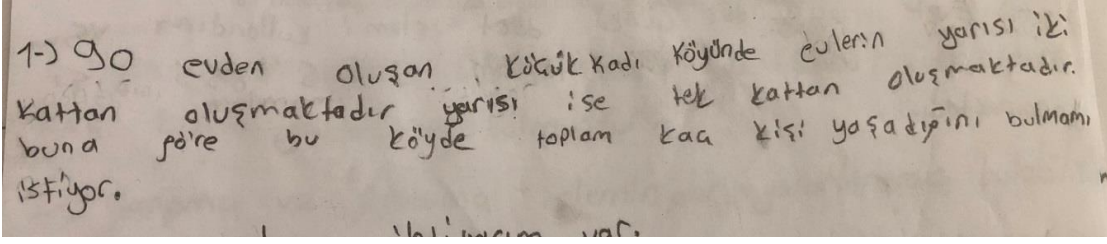 1-) 90 evden oluşan küçük Kadı Köyünde evlerin yarısı iki
kattan oluşmaktadır yarısı ise tek kattan oluşmaktadır.
buna göre bu köyde toplam kaç kişi yaşadığını bulmamı
istiyor.
var.